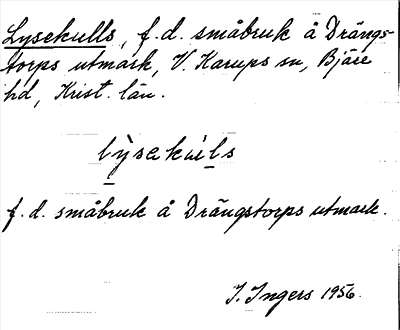 Lysekulls, f.d. småbruk å Drängs-
torps utmark, V. Karups sn, Bjäre
hd, Krist. län.
lỳsekùls
f.d. småbruk å Drängstorps utmark.
I. Ingers 1956.